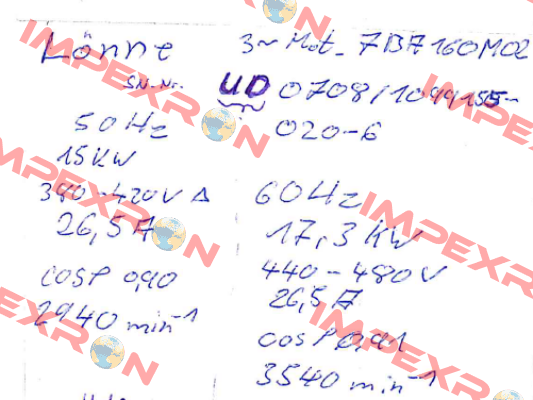 Lönne 3~ Mot. 7BA160M02
SN-Nr. UD 0708/1044155-
020-6
50Hz
15KW
380-420V Δ
26,5A
cosφ 0,90
2940 min⁻¹
60Hz
17,3KW
440-480V
26,5A
cosφ 0,91
3540 min⁻¹
IMPEXRON
IMPEXRON
IMPEXRON
IMPEXRON
IMPEXRON